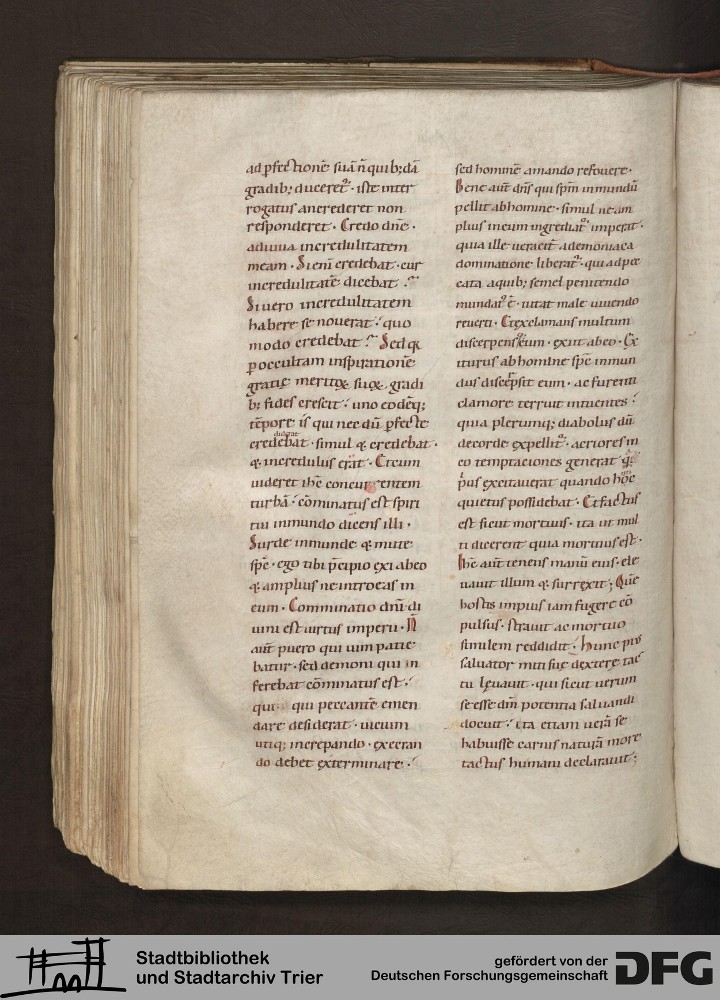 ad pfectionē suā n̄ quib; dā
gradib; duceret᷒ · iste inter
rogatus ancrederet non
responderet · Credo dn̄e ·
adiuua incredulitatem
meam · Si eni credebat · cur
incredulitatē dicebat ·
Si uero incredulitatem
habere se nouerat · quo
modo credebat · Sed qꝛ
p occultam inspirationē
gratię meritoꝝ suoꝝ · gradi
b; fides crescit · uno eodēq;
tēpore is qui nec dū pfecte
credebat · simul & credebat ·
& incredulus erat · Cū cum
uideret ih̄c concurrentem
turbā · cōminatus est spiri
tui inmundo dicens illi ·
Surde inmunde & mute
spē · ego tibi p̄cipio exi ab eo
& amplius ne introeas in
eum · Comminatio dn̄i di
uini est uirtus imperii · N
aut̄ puero qui uim patie
batur · sed demoni qui in
ferebat cōminatus est ·
qui qui peccantē emen
dare desiderat · uicium
utiq; increpando · execran
do debet exterminare ·
sed hominē amando refouere ·
Bene aut̄ dn̄s qui spm̄ inmundū
pellit ab homine · simul ne am
plius in eum ingrediat᷒ imperat ·
quia ille ueracit̄ a demoniaca
dominatione liberat᷒ · qui ad pec
cata a quib; semel penitendo
mundat᷒ ē · uitat male uiuendo
reuerti · Et exclamans multum
discerpens eum · exiit ab eo · Ex
iturus ab homine spc̄ inmun
dus discerpsit eum · ac furenti
clamore terruit intuentes ·
quia plerumq; diabolus dū
de corde expellit᷒ · acriores in
eo temptaciones generat q̄
prius excitauerat quando
quietus possidebat · Et factus
est sicut mortuus · ita ut mul
ti dicerent quia mortuus est ·
Ih̄c aut̄ tenens manū eius · ele
uauit illum & surrexit ; Quē
hostis impius iam fugere cō
pulsus · strauit ac mortuo
similem reddidit · hunc pius
saluator miti suę dextere tac
tu leuauit · qui sicut uerum
se esse dm̄ potentia saluandi
docuit · ita etiam uerā se
habuisse carnis naturā more
tactus humani declarauit ;
Stadtbibliothek
und Stadtarchiv Trier
gefördert von der
Deutschen Forschungsgemeinschaft
DFG